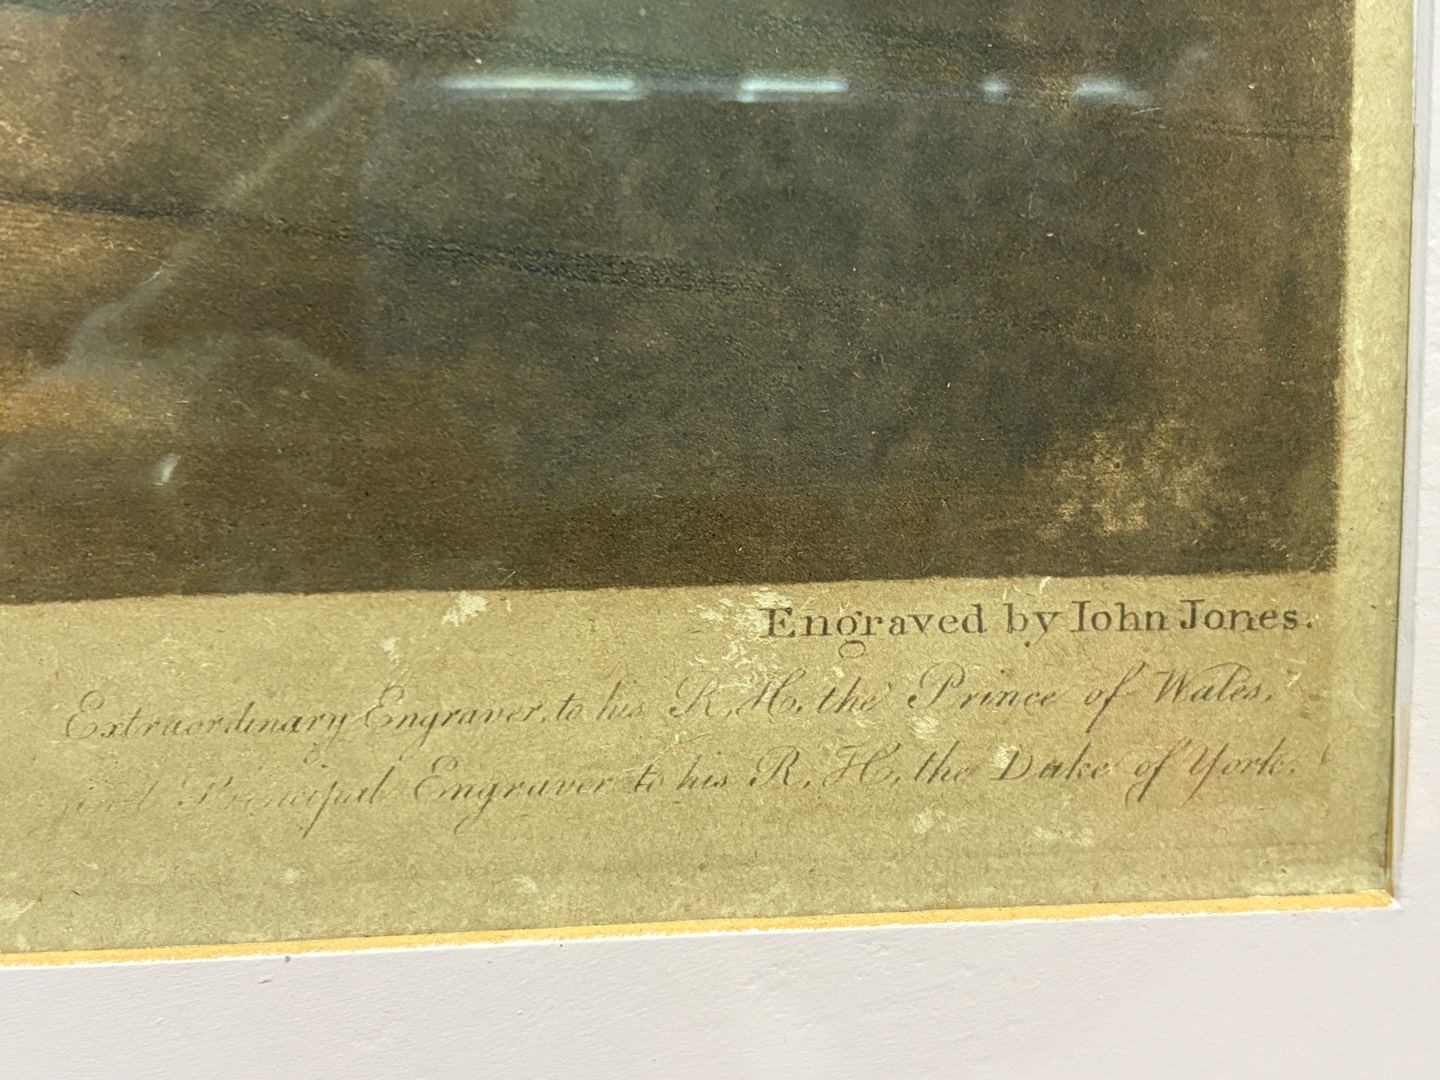 Engraved by Iohn Jones.
Extraordinary Engraver, to his R. H. the Prince of Wales,
and Principal Engraver to his R. H. the Duke of York.